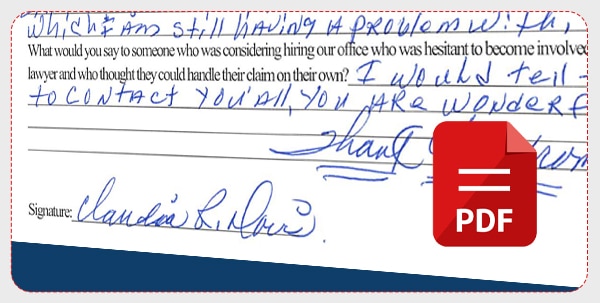 Which I Am still HAVING A problem with,
What would you say to someone who was considering hiring our office who was hesitant to become involve
lawyer and who thought they could handle their claim on their own? I would tell
to CONTACT YOU'All, YOU ARe WONderf
Thank
Signature: Claudia R. Davis
PDF